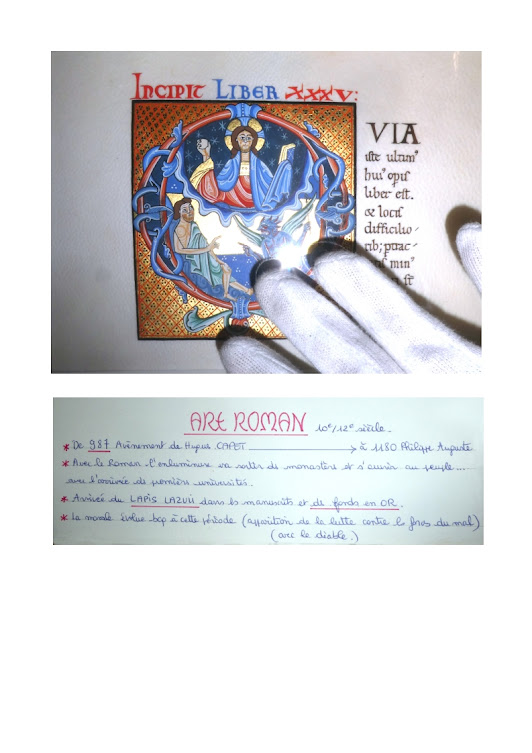 INCIPIT LIBER XXXV:
VIA
iste ultim'
hui' opis
liber est.
Et locis
difficilio-
rib; ptrac-
min'
st
ART ROMAN 10e/12e siècle.
* De 987 Avènement de Hugues CAPET → à 1180 Philippe Auguste
* Avec le Roman l'enluminure va sortir des monastère et s'ouvrir au peuple...
avec l'arrivée de premières universités.
* Arrivée du LAPIS LAZULI dans les manuscrits et de fonds en OR.
* La morale évolue bcp à cette période (apparition de la lutte contre les forces du mal)
(avec le diable.)